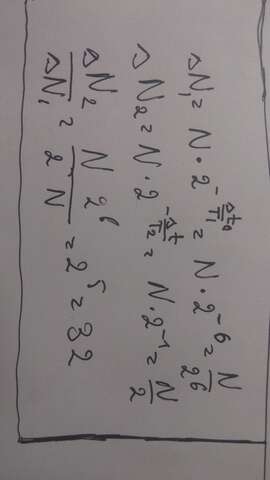 ΔN₁ = N · 2^(-Δt₀/T₁) = N · 2^(-6) = N/2^6
ΔN₂ = N · 2^(-Δt/T₂) = N · 2^(-1) = N/2
ΔN₂/ΔN₁ = N 2^6/2 N = 2^5 = 32